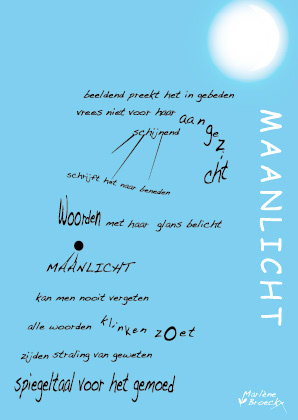 beeldend preekt het in gebeden
vrees niet voor haar aangezicht
schijnend
schrijft het naar beneden
Woorden met haar glans belicht
MAANLICHT
kan men nooit vergeten
alle woorden klinken zoet
zijden straling van geweten
spiegeltaal voor het gemoed
MAANLICHT
Marlène
Broeckx